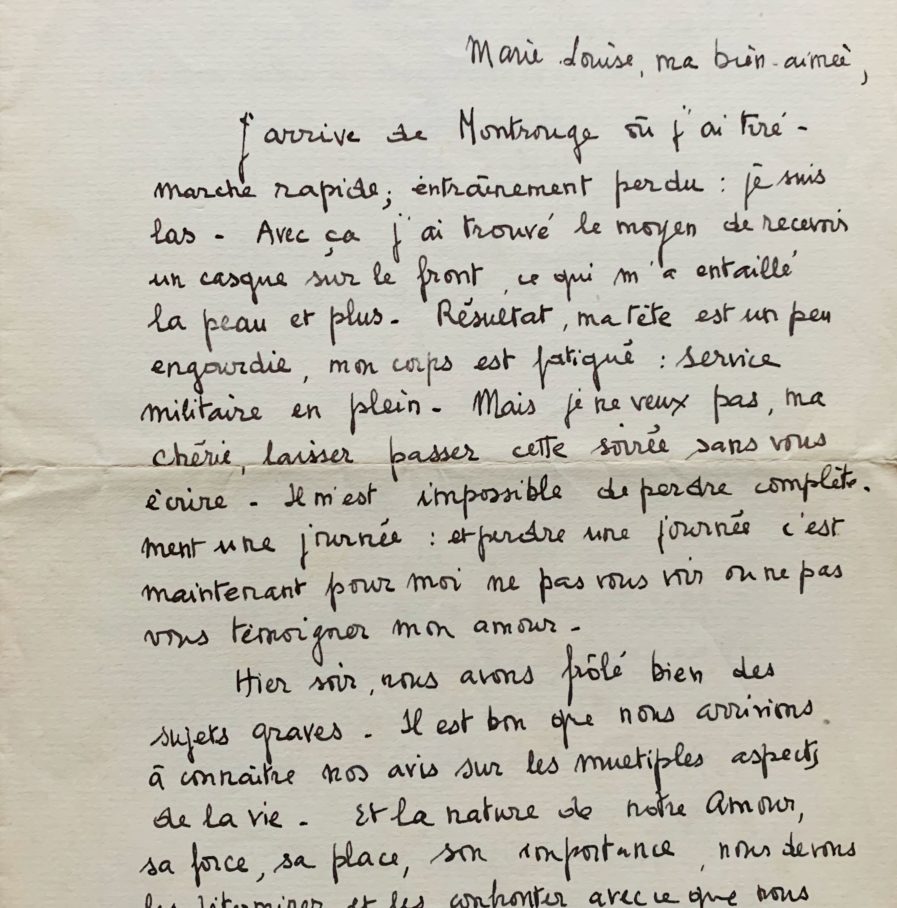 Marie Louise, ma bien-aimée,
J'arrive de Montrouge où j'ai tiré -
marche rapide; entraînement perdu : je suis
las - Avec ça j'ai trouvé le moyen de recevoir
un casque sur le front, ce qui m'a entaillé
la peau et plus - Résultat, ma tête est un peu
engourdie, mon corps est fatigué : service
militaire en plein - Mais je ne veux pas, ma
chérie, laisser passer cette soirée sans vous
écrire - Il m'est impossible de perdre complète-
ment une journée : et perdre une journée c'est
maintenant pour moi ne pas vous voir ou ne pas
vous témoigner mon amour -
Hier soir, nous avons frôlé bien des
sujets graves - Il est bon que nous arrivions
à connaître nos avis sur les multiples aspects
de la vie - Et la nature de notre Amour,
sa force, sa place, son importance, nous devons
les déterminer et les confronter avec ce que nous